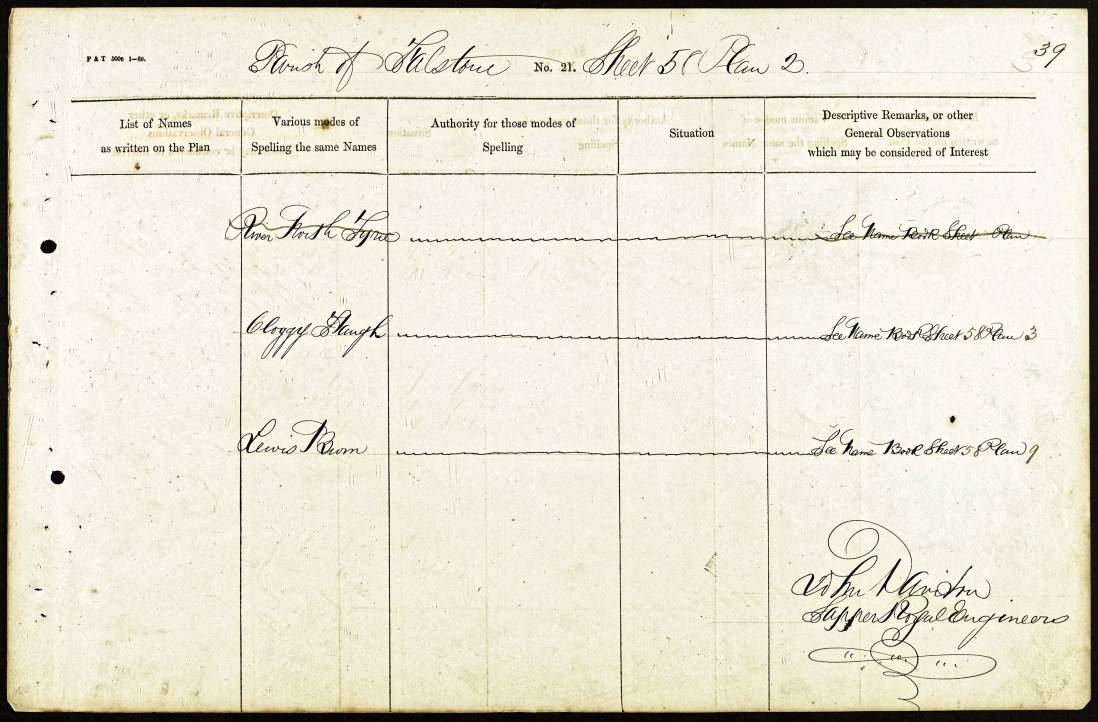 F & T 5000 1—60.
Parish of Falstone No. 21. Sheet 58 Plan 2.
39
List of Names
as written on the Plan
Various modes of
Spelling the same Names
Authority for those modes of
Spelling
Situation
Descriptive Remarks, or other
General Observations
which may be considered of Interest
River North Tyne See Name Book Sheet Plan
Cloggy Haugh See Name Book Sheet 58 Plan 3
Lewis Burn See Name Book Sheet 58 Plan 9
John
Sapper Royal Engineers